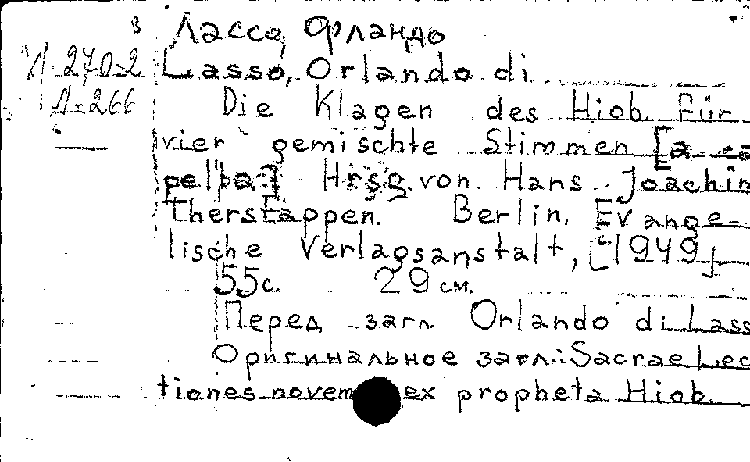 в
Лассо, Орландо
Л-270-2 Lasso, Orlando di
Л-266 Die Klagen des Hiob für
vier gemischte Stimmen [a ca
pella.] Hrsg. von Hans Joachim
Therstappen. Berlin, Evange-
lische Verlagsanstalt, [1949]
55с. 29 см.
Перед загл Orlando di Lass
Оригинальное загл.: Sacrae Lec
tiones novem ex propheta Hiob.